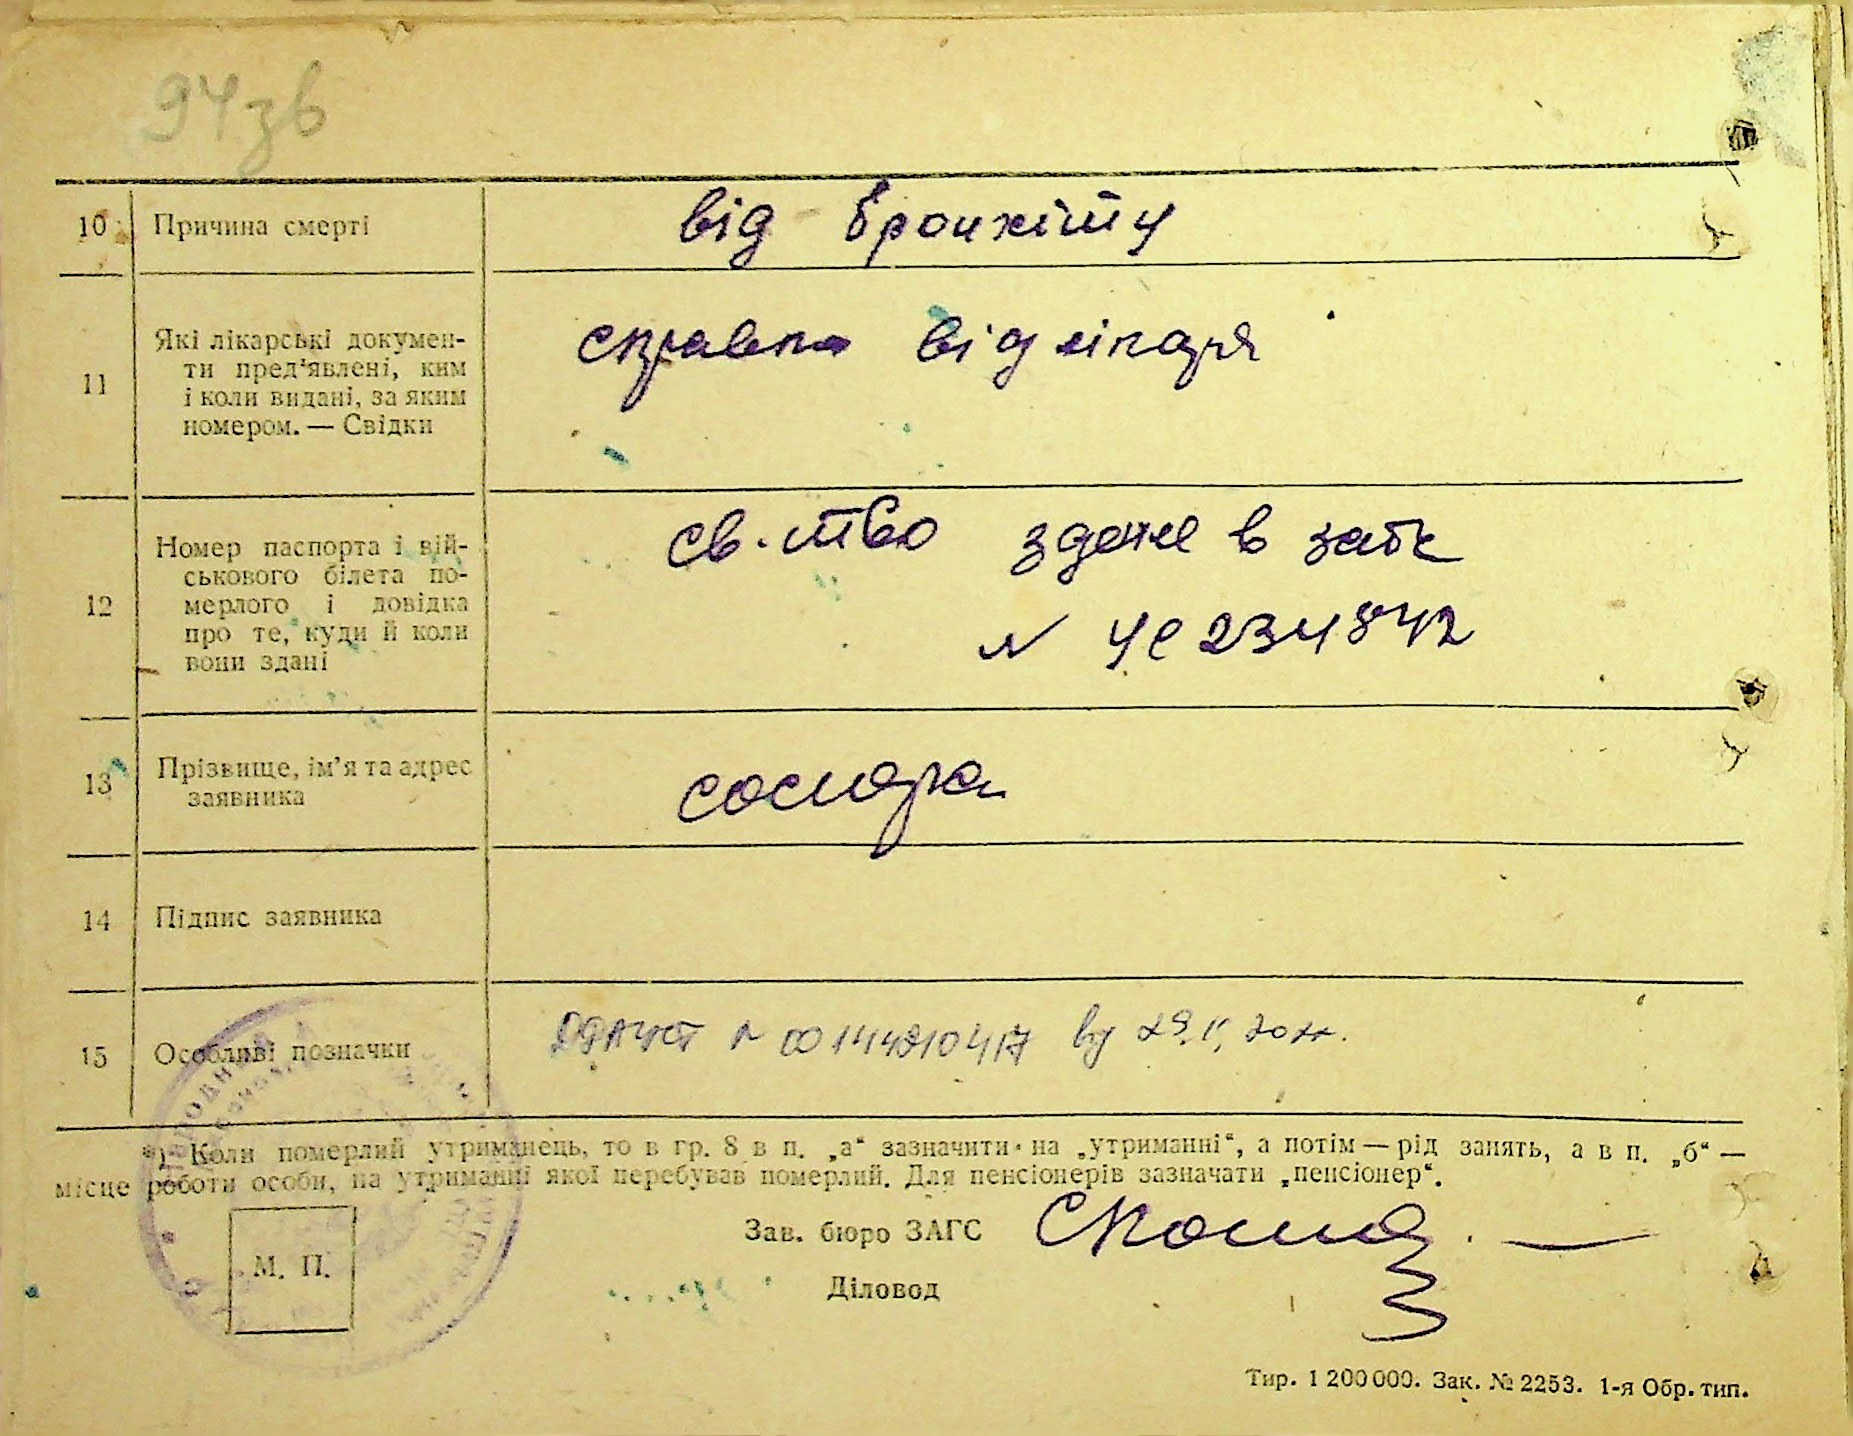 94зв
10 Причина смерті від бронхіту
11 Які лікарські докумен-
ти пред'явлені, ким
і коли видані, за яким
номером. — Свідки
справка від лікаря
12 Номер паспорта і вій-
ськового білета по-
мерлого і довідка
про те, куди й коли
вони здані
св-тво здане в загс
N УС 234842
13 Прізвище, ім'я та адрес
заявника
14 Підпис заявника
15 Особливі позначки
N 00144210417 від 29.V.20
*) Коли померлий утриманець, то в гр. 8 в п. „а“ зазначити на „утриманні“, а потім — рід занять, а в п. „б“ —
місце роботи особи, на утриманні якої перебував померлий. Для пенсіонерів зазначати „пенсіонер“.
Зав. бюро ЗАГС
М. П.
Діловод
Тир. 1 200 000. Зак. № 2253. 1-я Обр. тип.